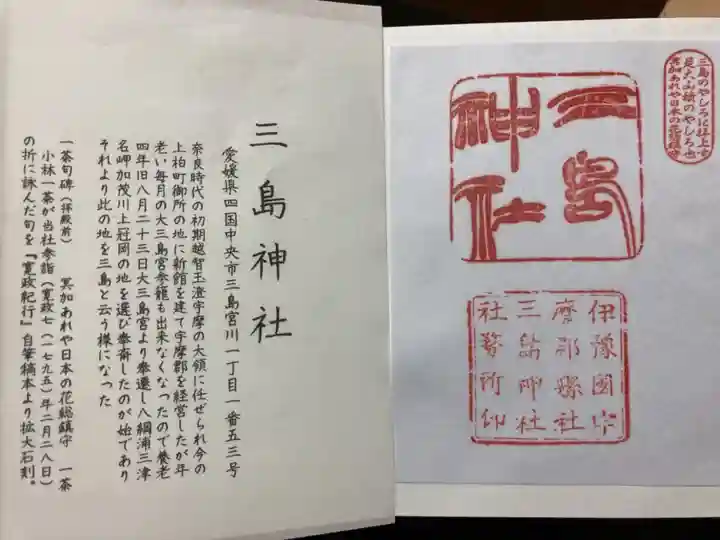 三島神社
愛媛県四国中央市三島宮川一丁目一番五三号
奈良時代の初期越智玉澄宇摩の大領に任ぜられ今の
上柏町御所の地に新館を建て宇摩郡を経営したが年
老い毎月の大三島宮参籠も出来なくなったので養老
四年旧八月二十三日大三島宮より奉遷し八綱浦三津
名岬加茂川上冠岡の地を選び奉斎したのが始であり
それより此の地を三島と云う様になった
一茶句碑(拝殿前) 冥加あれや日本の花総鎮守 一茶
小林一茶が当社参詣(寛政七(一七九五)年二月二八日)
の折に詠んだ句を『寛政紀行』自筆稿本より拡大石刻。
三島のやしろに拝上す
是大山積のやしろ也
冥加あれや日本の花惣鎮守
三島
神社
伊豫國宇
摩郡縣社
三島神社
社務所印